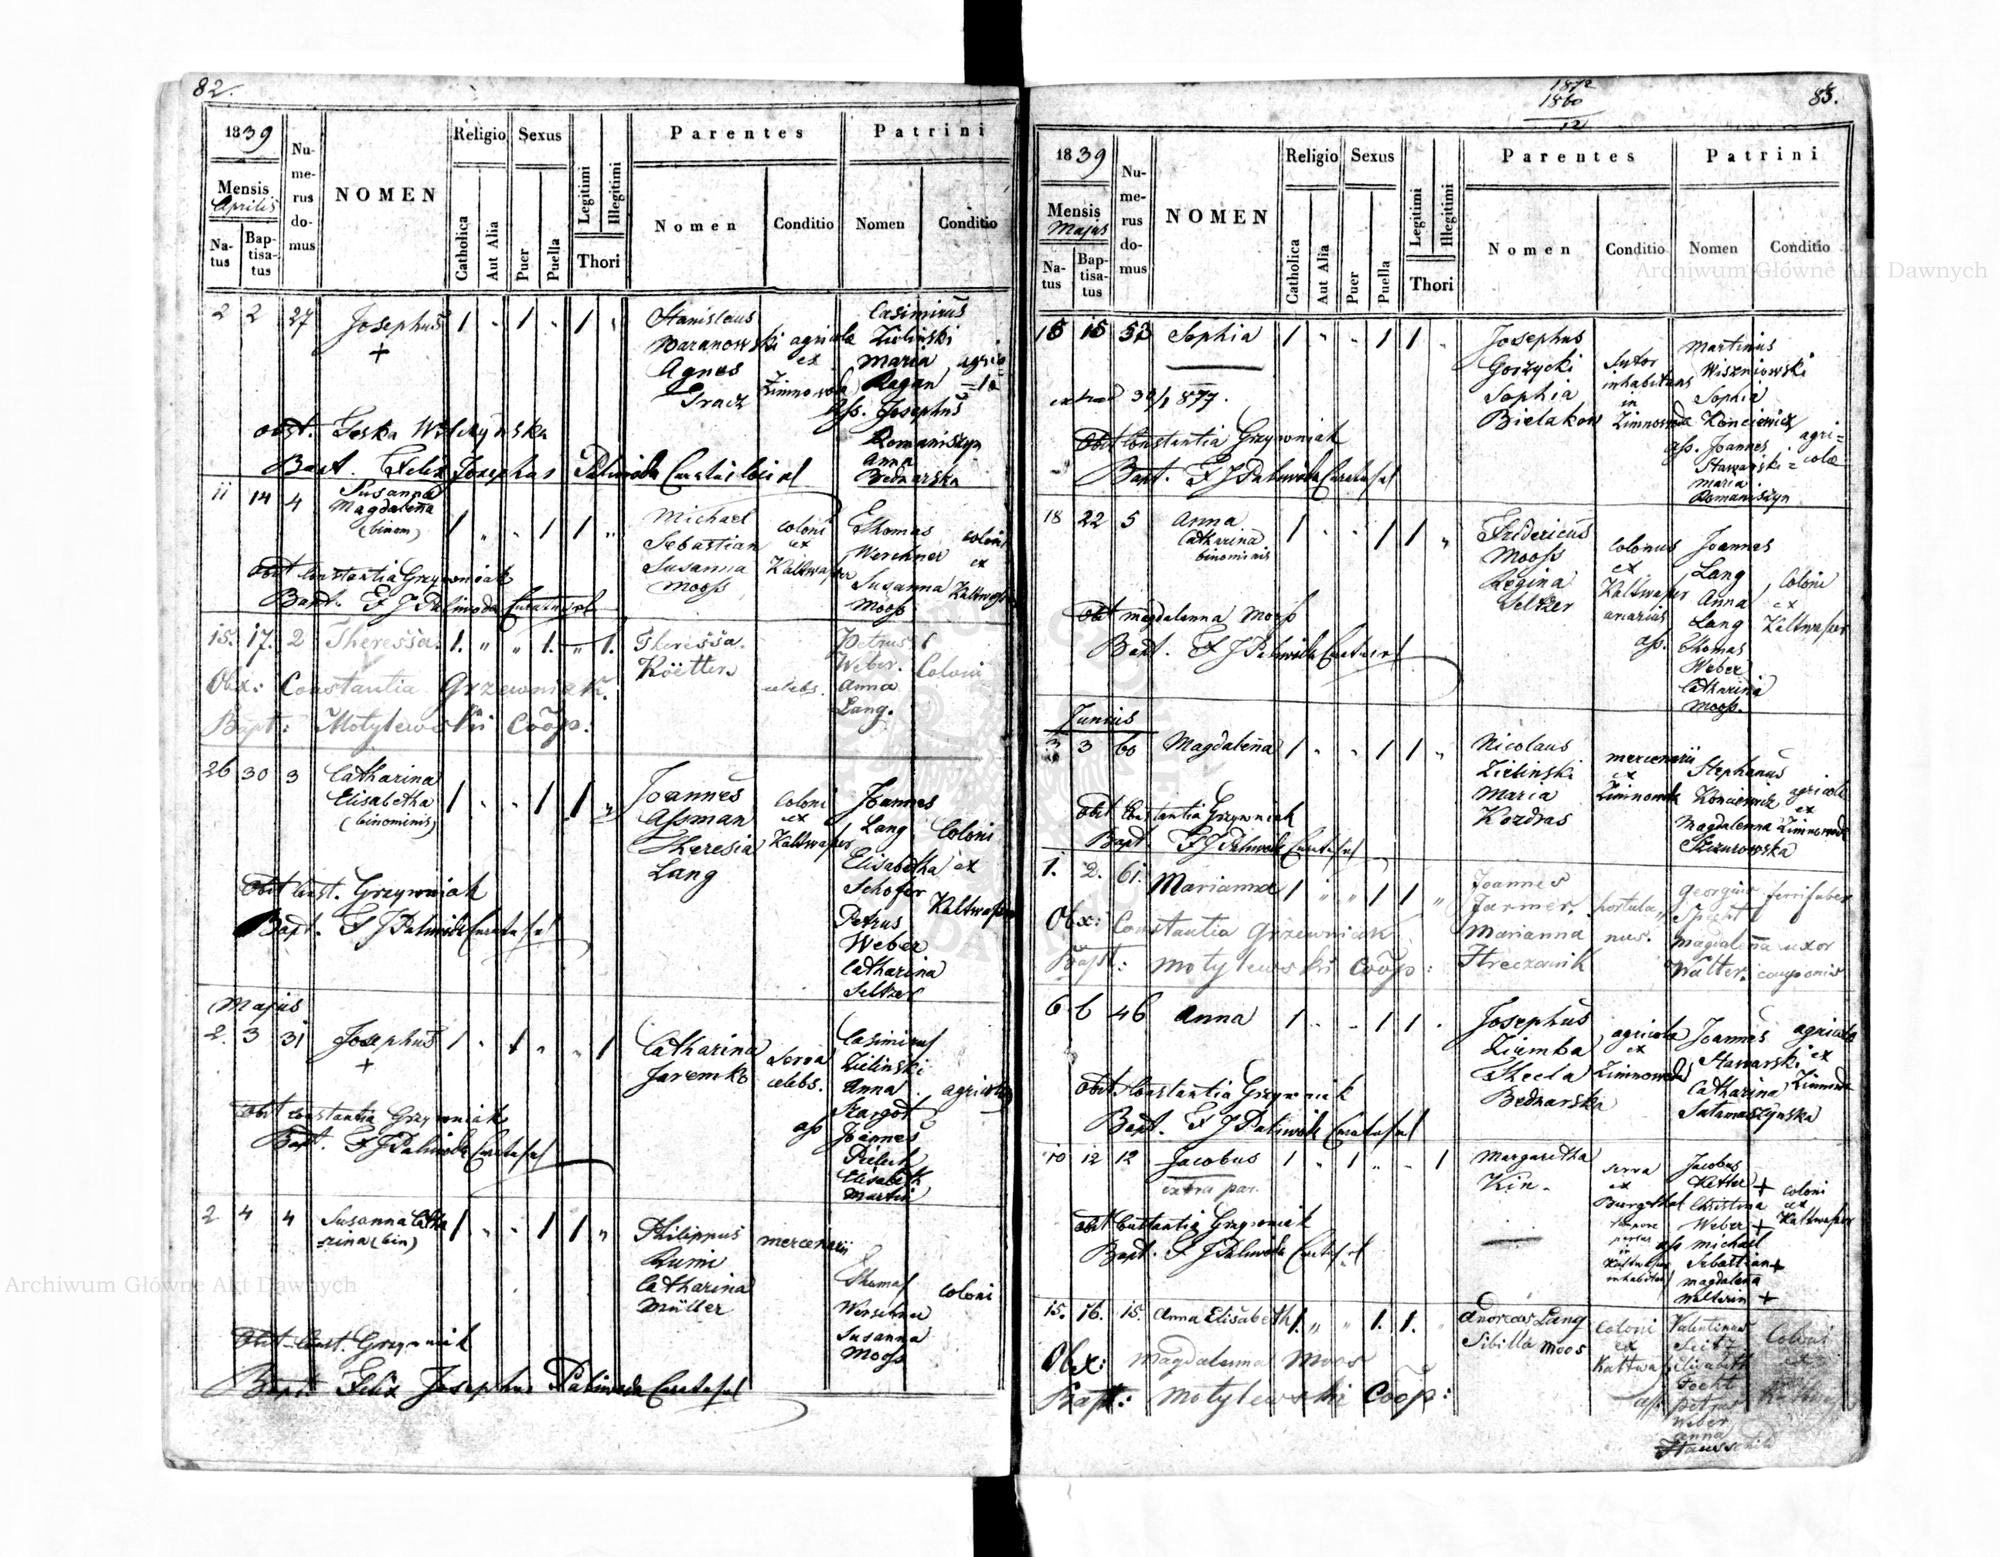 82.
1839
Mensis
Aprilis
Na-
tus
Bap-
tisa-
tus
Nu-
me-
rus
do-
mus
NOMEN
Religio
Catholica
Aut Alia
Sexus
Puer
Puella
Legitimi
Illegitimi
Thori
Parentes
Nomen
Conditio
Patrini
Nomen
Conditio
2 2 27 Josephus 1 " 1 " 1 "
+
Stanislaus
Baranowski agricolae
Agnes ex
Gracz Zimnowoda
Casimirus
Zielinski
Maria
Ragan
ass. Josephus
Romaniszyn
Anna
Bednarska
obst. Teska Wilczynska
Bapt. Felix Josephus Paliwoda
11 14 4 Susanna
Magdalena
(binom)
1 " " 1 1 "
Michael
Sebastian
Susanna
Mooss
coloni
ex
Kaltwasser
Thomas
Werchner
Susanna
Mooss
coloni
ex
Obst Constantia Grzywniak
Bapt. F J Paliwoda
15. 17. 2 Theressa. 1. " " 1. " 1.
Theressa.
Köetter
celebs.
Petrus
Weber.
Anna
Lang.
Coloni
Obx: Constantia Grzewniak.
Bapt: Motylewski Coop:
26 30 3 Catharina
Elisabetha
(binominis)
1 " " 1 1 "
Joannes
Assman
Theresia
Lang
coloni
ex
Kaltwasser
Joannes
Lang
Elisabetha
Schofer
Petrus
Weber
Catharina
Seltzer
Coloni
ex
Kaltwasser
Obst Const. Grzywniak
Bapt. F J Paliwoda
Majus
2. 3 31 Josephus 1 " 1 " " 1
+
Catharina
Jaremko
serva
celebs.
Casimirus
Zielinski
Anna
Szargot
ass Joannes
Pielech
Elisabeth
Martin
Obst Constantia Grzywniak
Bapt. F J Paliwoda
2 4 4 Susanna Catha
rina (bin)
1 " " 1 1 "
Philippus
Rumi
Catharina
Müller
mercenarii
Thomas
Werschner
Susanna
Mooss
coloni
Obst Const. Grzywniak
Bapt. Felix Josephus Paliwoda
1872
1860
12
83.
1839
Mensis
Majus
Na-
tus
Bap-
tisa-
tus
Nu-
me-
rus
do-
mus
NOMEN
Religio
Catholica
Aut Alia
Sexus
Puer
Puella
Legitimi
Illegitimi
Thori
Parentes
Nomen
Conditio
Patrini
Nomen
Conditio
15 15 53 Sophia 1 " " 1 1 "
Josephus
Gorzycki
Sophia
Bielakow
Sutor
inhabitans
in
Zimnowoda
Martinus
Wiszniowski
Sophia
Konciewicz
ass. Joannes
Stawarski
Maria
Romaniszyn
agri=
colae
Obst Constantia Grzywniak
Bapt. F J Paliwoda
18 22 5 Anna
Catharina
binominis
1 " " 1 1 "
Fridericus
Mooss
Regina
Seltzer
Colonus
ex
Kaltwasser
Joannes
Lang
Anna
Lang
ass. Thomas
Weber
Catharina
Mooss.
Coloni
ex
Kaltwasser
Obst Magdalenna Mooss
Bapt. F J Paliwoda
Junius
3 3 60 Magdalena 1 " " 1 1 "
Nicolaus
Zielinski
Maria
Kozdras
mercenarii
ex
Zimnowoda
Stephanus
Konciewicz
Magdalenna
Szczurowska
agricolae
ex
Zimnowoda
Obst Constantia Grzywniak
Bapt F J Paliwoda
1. 2. 61. Marianna 1 " " 1 1 "
Joannes
Farmer.
Marianna
Streczanik
hortula
nus.
Georgius
Specht
Magdalena uxor
Walter. cauponis
ferrifaber
Obx: Constantia Grzewniak
Bapt: Motylewski Coop:
6 6 46 Anna 1 " " 1 1 "
Josephus
Ziemba
Thecla
Bednarska
agricola
ex
Zimnowoda
Joannes
Stawarski
Catharina
agricola
ex
Obst. Constantia Grzywniak
Bapt. F J Paliwoda
10 12 12 Jacobus 1 " 1 " " 1
extra par.
Margaretha
Kin.
serva
ex
Burgthal
tempore
partus
in
Kaltwasser
Jacobus
Ketter +
Christina
Weber +
ass Michael
Sebastian +
Magdalena
Walterin +
coloni
ex
Kaltwasser
Obst Constantia Grzywniak
Bapt. F J Paliwoda
15. 16. 15. Anna Elisabeth 1. " " 1. 1. "
Andreas Lang
Sibilla Moos
Coloni
ex
Valentinus
Seitz
Elisabeth
ass.
Petrus
Weber
Anna
Coloni
ex
Obx: Magdalenna Moos
Bapt: Motylewski Coop:
Archiwum Główne Akt Dawnych
Archiwum Główne Akt Dawnych